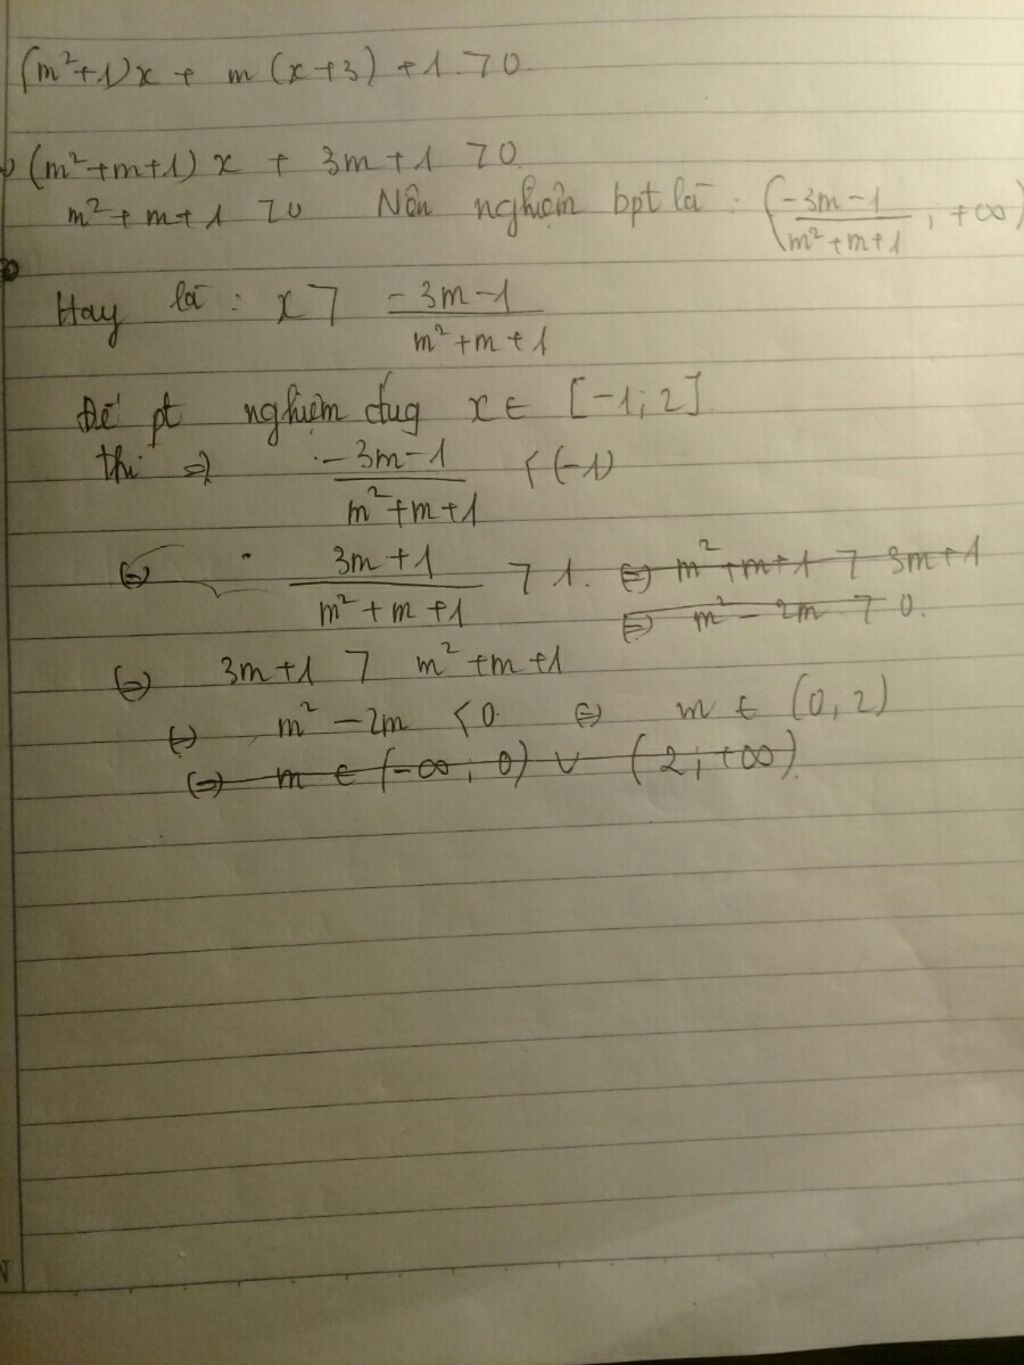 (m²+1)x + m(x+3)+1 > 0
(m²+m+1)x + 3m+1 > 0
m²+m+1 > 0 Nên nghiệm bpt là : (\frac{-3m-1}{m²+m+1} ; +∞)
Hay là : x > \frac{-3m-1}{m²+m+1}
Để pt nghiệm đug x ∈ [-1; 2].
thì => \frac{-3m-1}{m²+m+1} < (-1)
(=) \frac{3m+1}{m²+m+1} > 1. (=) m²+m+1 > 3m+1
(=) m² - 2m > 0.
(=) 3m+1 > m²+m+1
(=) m² - 2m < 0 (=) m ∈ (0, 2)
(=) m ∈ (-∞; 0) ∪ (2; +∞).
N